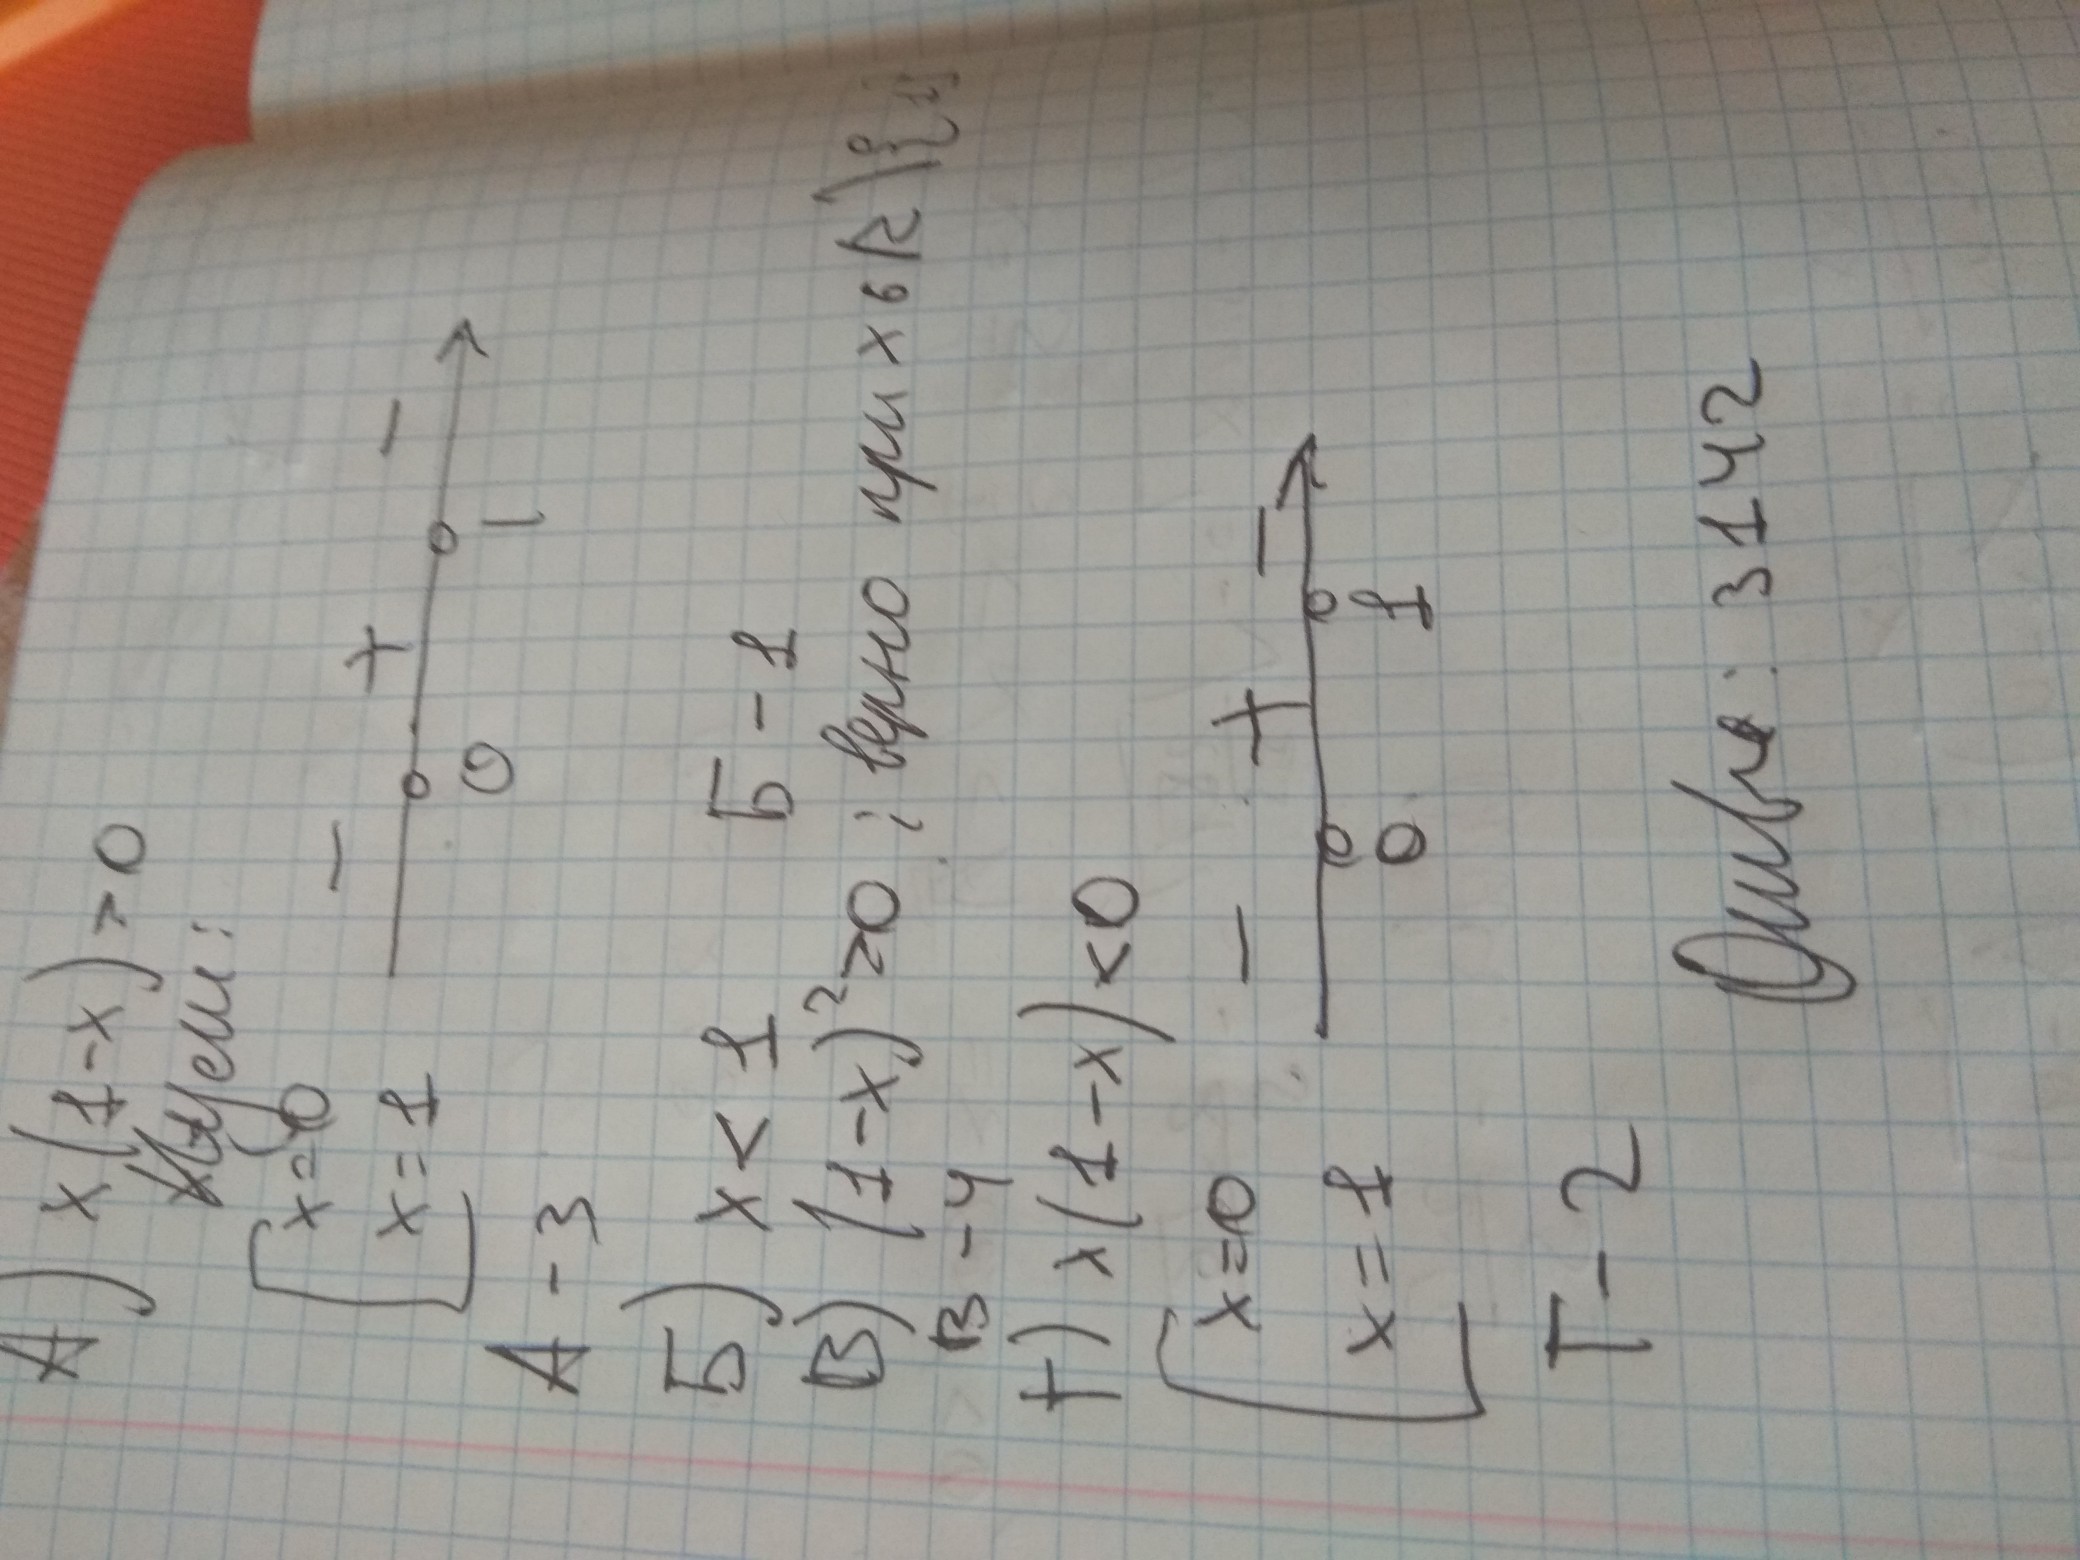 А) x(1-x)>0
Нули:
x=0
x=1
- + -
0 1
А-3
Б) x<1 Б-1
В) (1-x)²>0; верно при x∈R\{1}
В-4
Г) x(1-x)<0
x=0
x=1
- + -
0 1
Г-2
Ответ: 3142